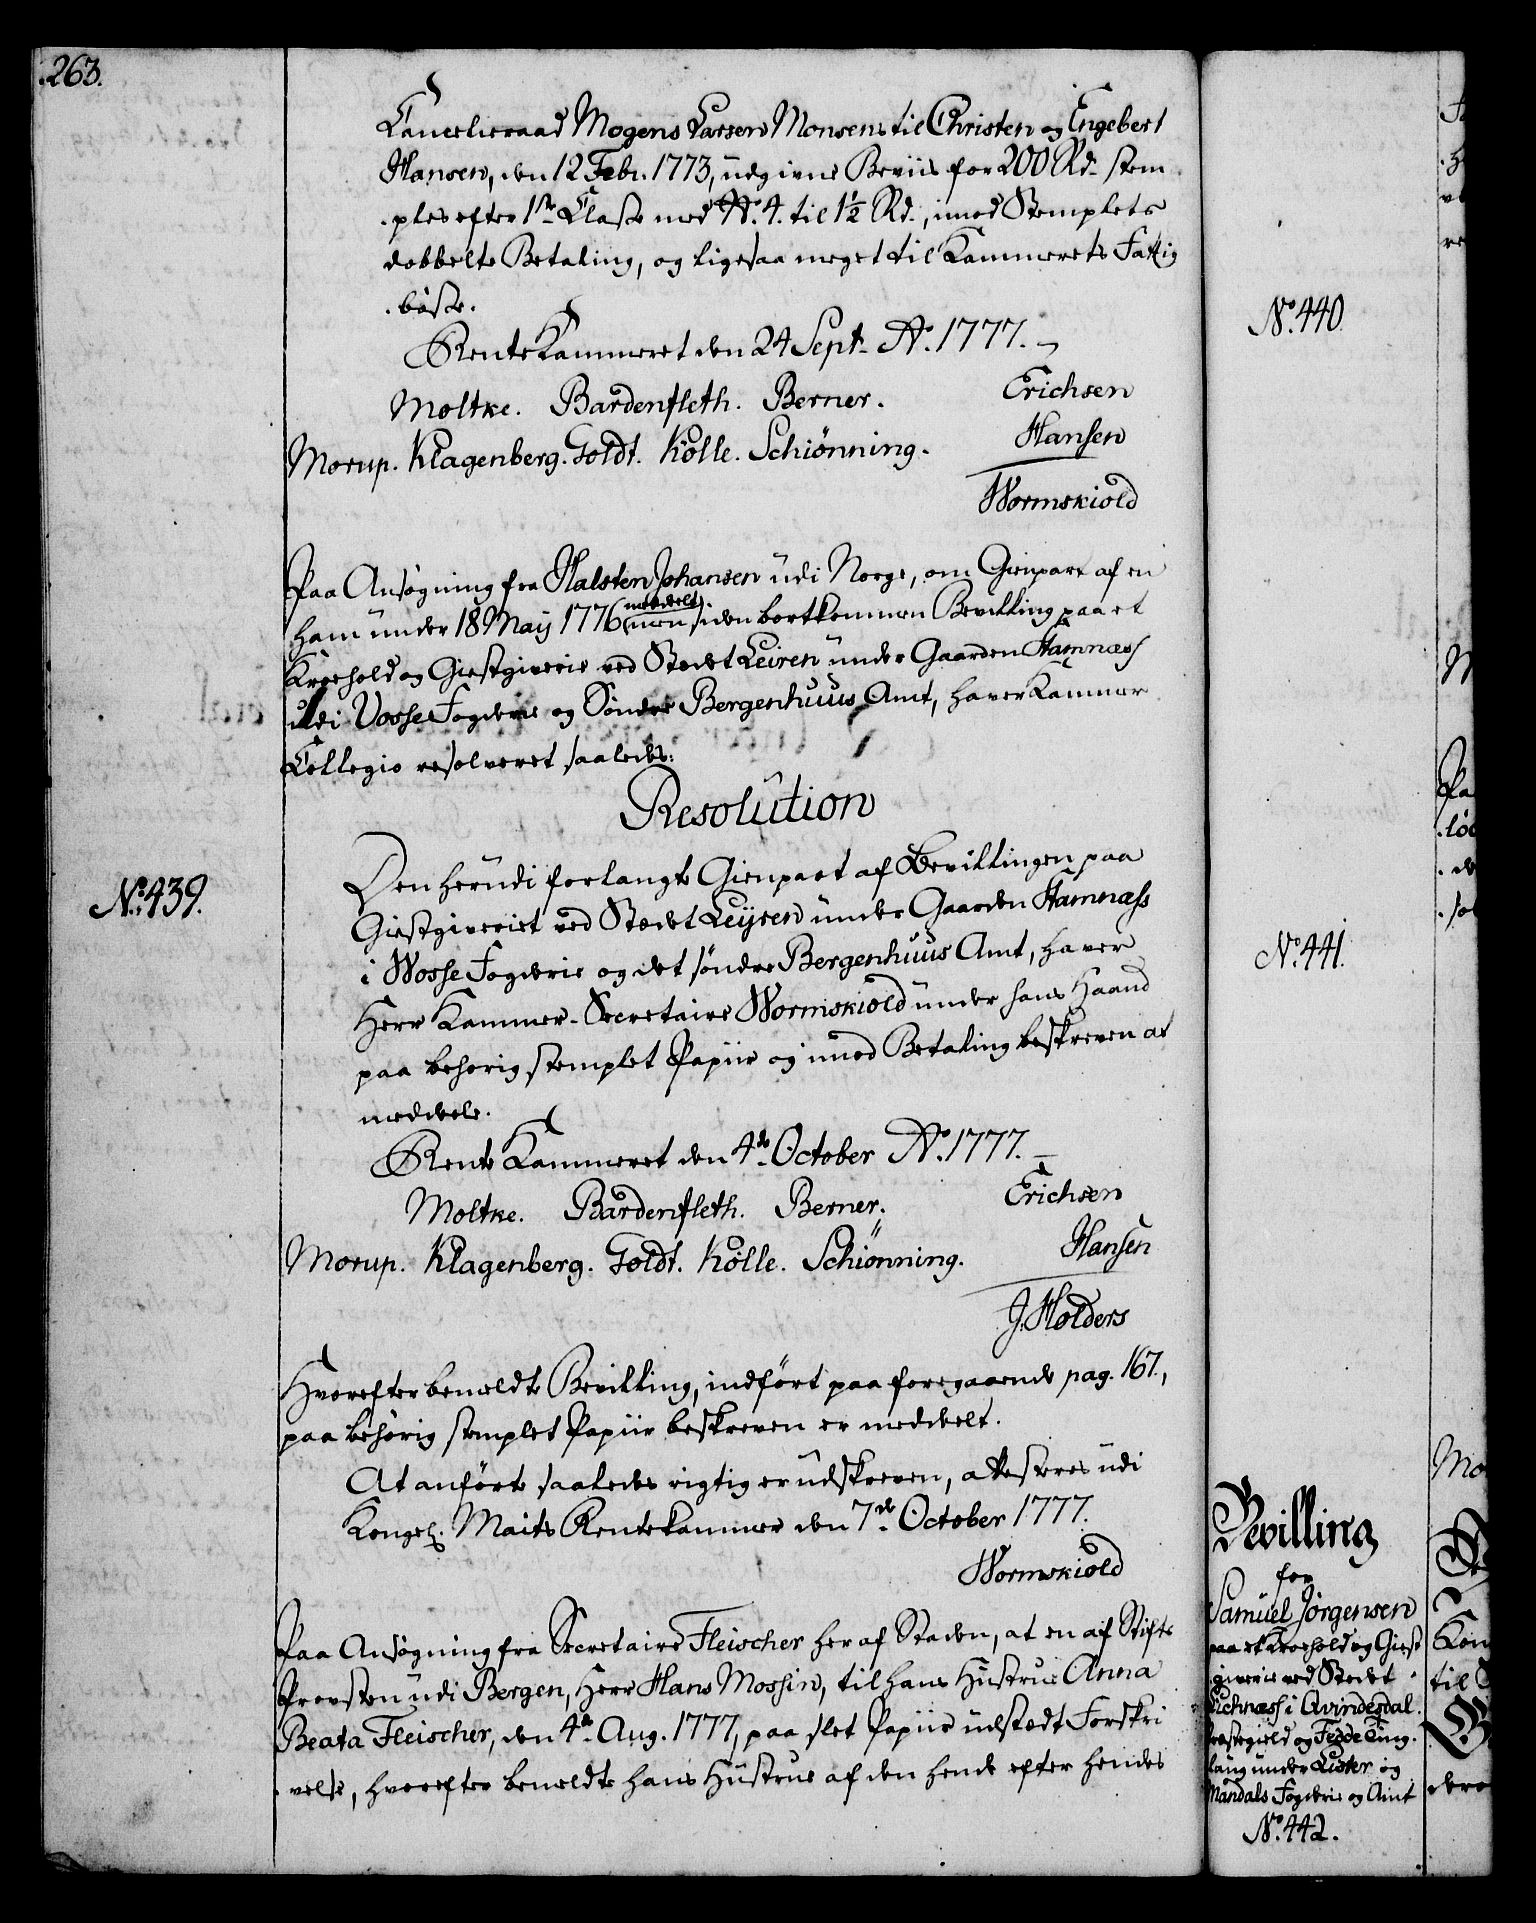 263.
Cancelieraad Mogens Larsen Monsens til Christen og Engebert
Hansen, den 12 Febr. 1773, udgivne Beviis for 200 Rd. stem
ples efter 1ste Classe med No. 4. til 1½ Rd., imod Stemplets
dobbelte Betaling, og ligesaa meget til Kammerets Fattig
bösse.
RenteKammeret den 24 Sept. Ao. 1777.
Moltke. Bardenfleth. Berner. Erichsen
Morup. Klagenberg. Goldt. Kölle. Schiönning. Hansen
Wormskiold
Paa Ansögning fra Halsten Johansen udi Norge, om Gienpart af en
ham under 18 Maij 1776 meddelt men siden bortkommen Bevilling paa et
Kroehold og Giestgiverie ved Stedet Leiren under Gaarden Hamnæss
udi Vosse Fogderie og Söndre Bergenhuus Amt, haver Kammer
Collegio resolveret saaledes:
Resolution
No. 439.
Den herudi forlangte Gienpart af Bevillingen paa
Giestgiveriet ved Stedet Leijren under Gaarden Hamnæss
i Wosse Fogderie og det söndre Bergenhuus Amt, haver
Herr Kammer-Secretaire Wormskiold under hans Haand
paa behörig stemplet Papiir og imod Betaling beskreven at
meddele.
Rente Kammeret den 4de October Ao. 1777.
Moltke. Bardenfleth. Berner. Erichsen
Morup. Klagenberg. Goldt. Kölle. Schiönning. Hansen
J. Holders
Hvorefter bemeldte Bevilling, indfört paa foregaaende pag. 167.,
paa behörig stemplet Papiir beskreven er meddelt.
At anförte saaledes rigtig er udskreven, attesteres udi
Kongel. Maits Rentekammer den 7de October 1777.
Wormskiold
Paa Ansögning fra Secretaire Fleischer her af Staden, at en af Stifts
Provsten udi Bergen, Herr Hans Mossin, til hans Hustrue Anna
Beata Fleischer, den 4de Aug. 1777, paa slet Papiir udstædt Forskri
velse, hvorefter bemeldte hans Hustrue af den hende efter hendes
No. 440.
No. 441.
Bevilling
for
Samuel Jörgensen
paa et Kroehold og Giest
giverie ved Stedet
i Qvindesdal
Præstegield og Fedde Ting
laug under Lister og
Mandals Fogderie og Amt
No. 442.